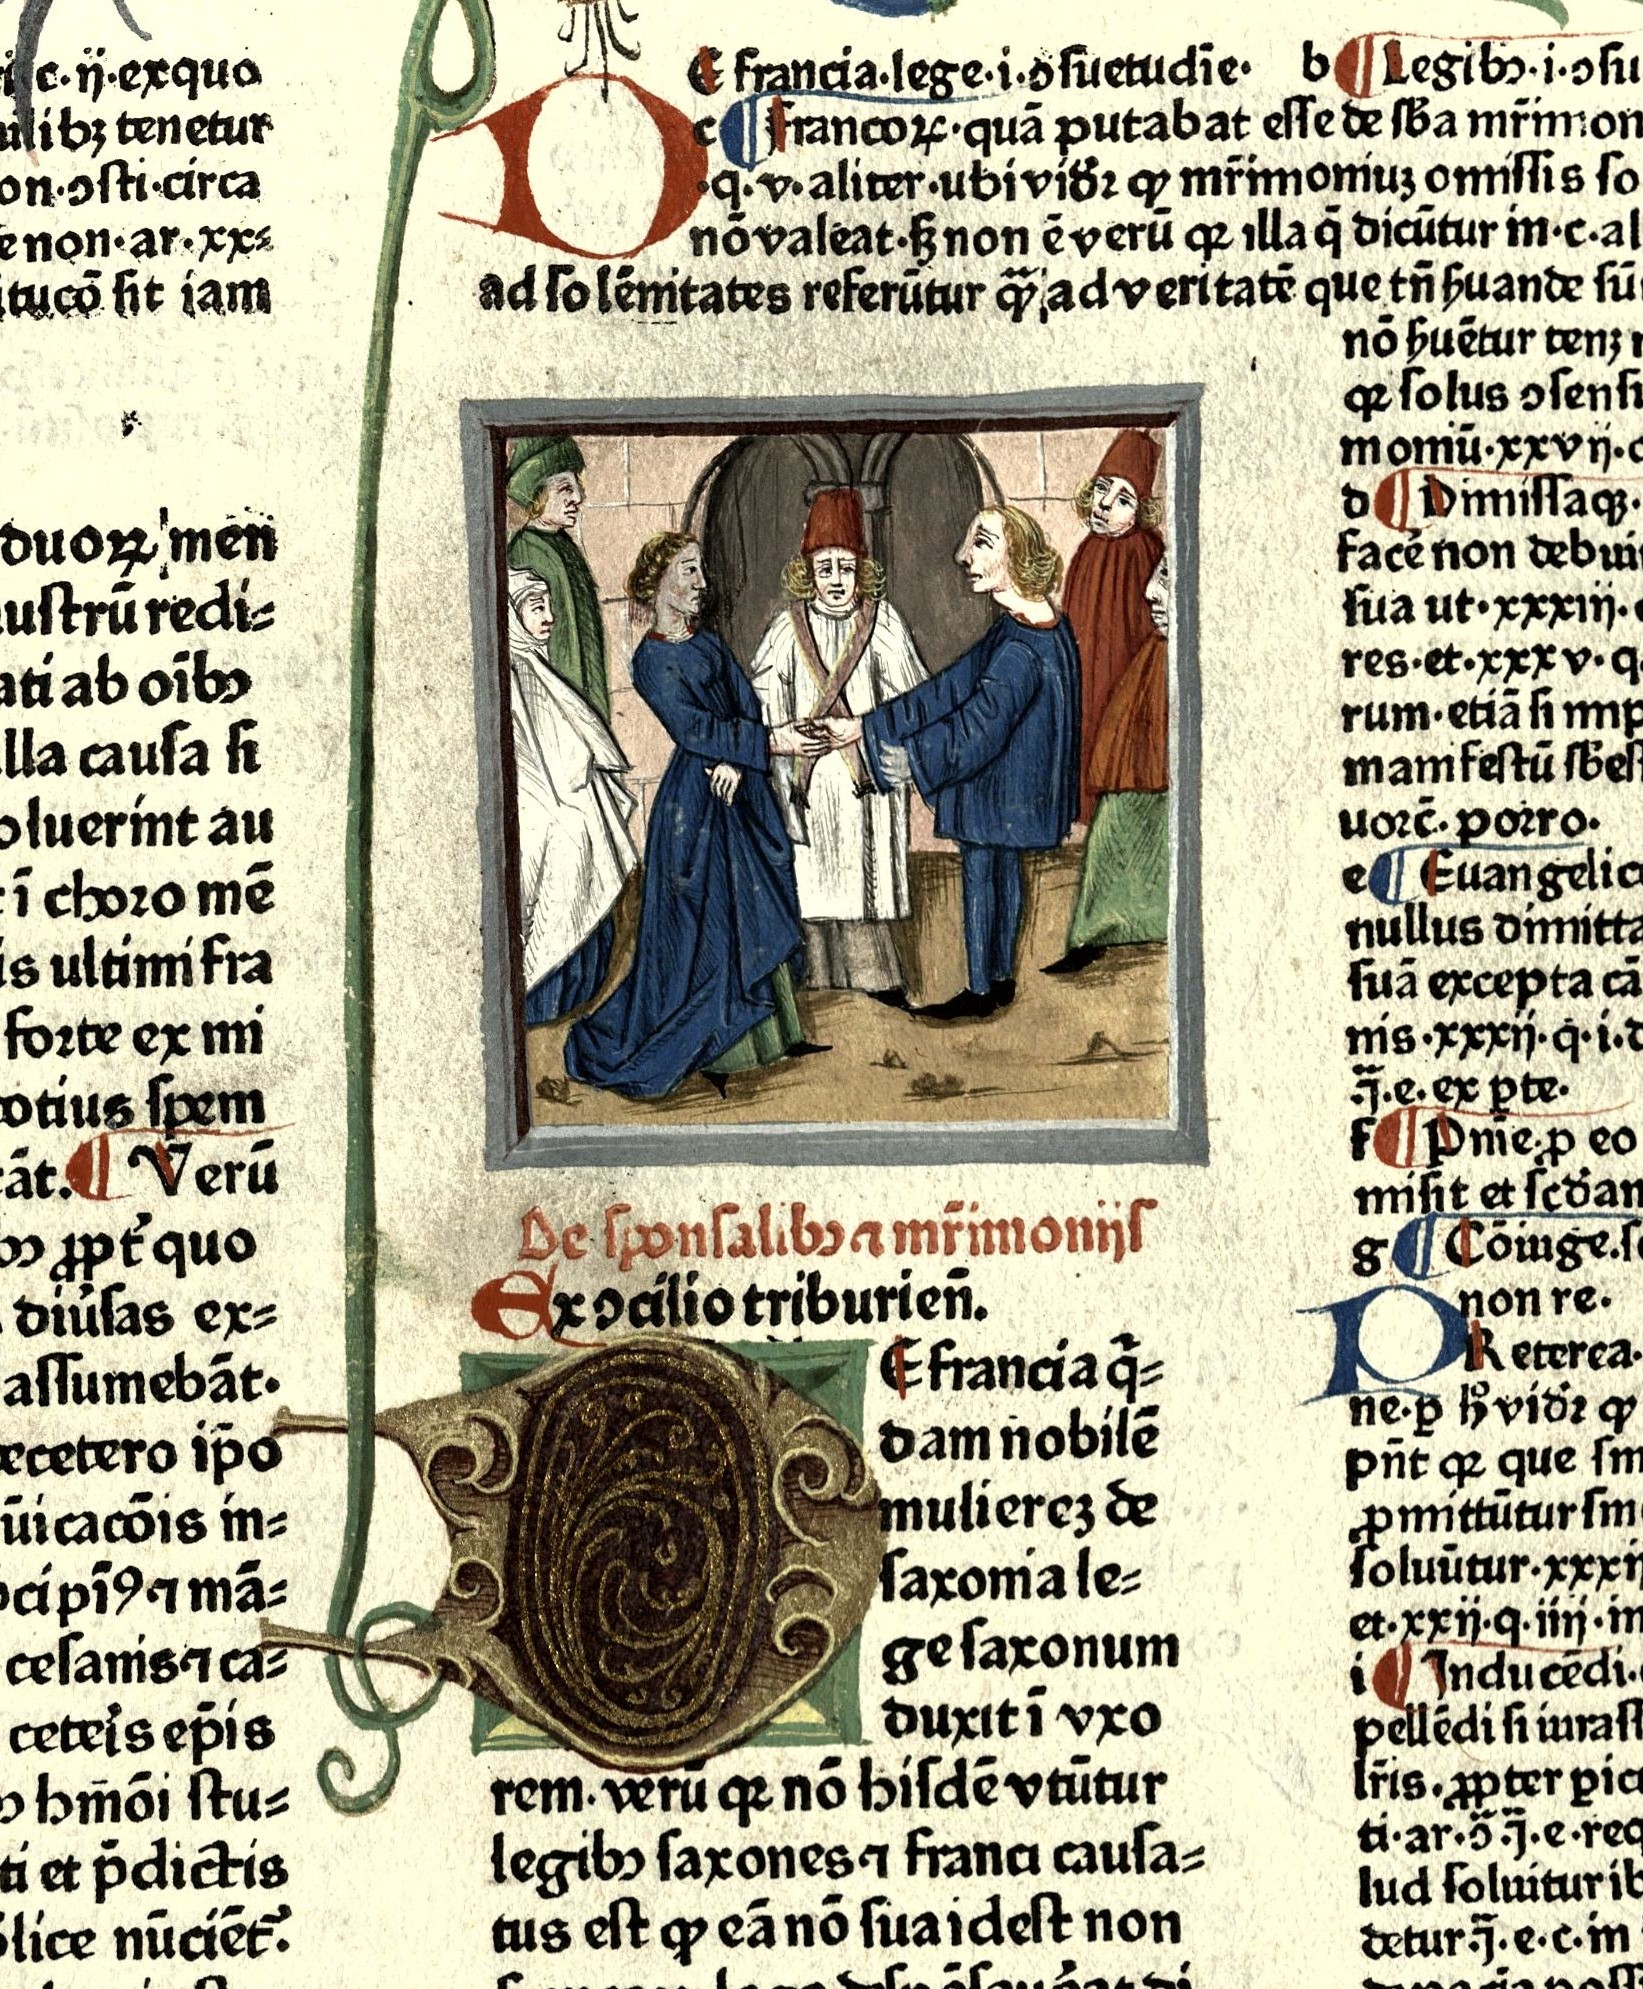 c·ij·exquo
tenetur
on·ↄsti·circa
e non·ar·xx⸗
sit iam
duoꝝ men
austrū redi⸗
ati ab oībꝫ
lla causa si
oluerint au
ī choro mē
is ultimi fra
forte ex mi
totius spem
cāt. ¶ Verū
ꝓpt̉ quo
diu̾sas ex⸗
assumebāt·
ecetero ip̄o
ūicacōis in⸗
⁊ mā⸗
cesariis ⁊ ca⸗
ceteris ep̄is
hm̄ōi stu⸗
ti et p̄dictis
lice nūciēt᷑.
DE francia·lege·i·ↄsuetudīe·
c ¶ Francoꝝ·quā putabat esse de sb̄a mr̄imon
·q·v·aliter·ubi vid̉ꝛ ꝙ mr̄imoniuꝫ omissis so
nō valeat·sꝫ non ē verū qꝛ illa q̄ dicūtur in·c·al
ad solēnitates referūtur ad veritatē que tn̄ ẜuande sū
De sponsalibꝫ ⁊ mr̄imoniis
Ex ↄcilio triburien̄.
DE francia q̄⸗
dam nobilē
mulierē de
saxonia le⸗
ge saxonum
duxit ī vxo
rem. verū qꝛ nō hisdē vtūtur
legibꝫ saxones ⁊ franci causa⸗
tus est ꝙ eā nō sua idest non
b ¶ Legibꝫ·i·ↄsu
nō ẜuētur tenꝫ
qꝛ solus ↄsensu
moniū·xxvij·
d ¶ Dimissaqꝫ·
facē non debui
sua ut·xxxiij·
res·et·xxxv·q
rum·etiā si imp
manifestū sb̄es
uorc̄·porro·
e ¶ Euangelic
nullus dimitta
suā excepta cā
nis·xxxij·q·i·d
q̄·e·ex pte·
f ¶ Pm̄e·p eo
misit et scd̄am
g ¶ Cōiuge·s
non re.
PReterea·
ne·ꝑ hͦ vid̉ꝛ ꝙ
pn̄t qꝛ que sm
ꝓmittūtur sm
soluūtur·xxxij
et·xxij·q·iiij·in
i ¶ Inducēdi·
pellēdi si iurass
lr̄is·ꝓpter
ti·ar·ↄ̄·q̄·e·req
lud soluitur ib
detur·q̄·e·c·in